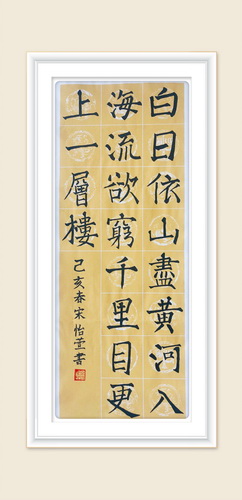 白日依山盡黄河入
海流欲窮千里目更
上一層樓
己亥春宋怡萱書